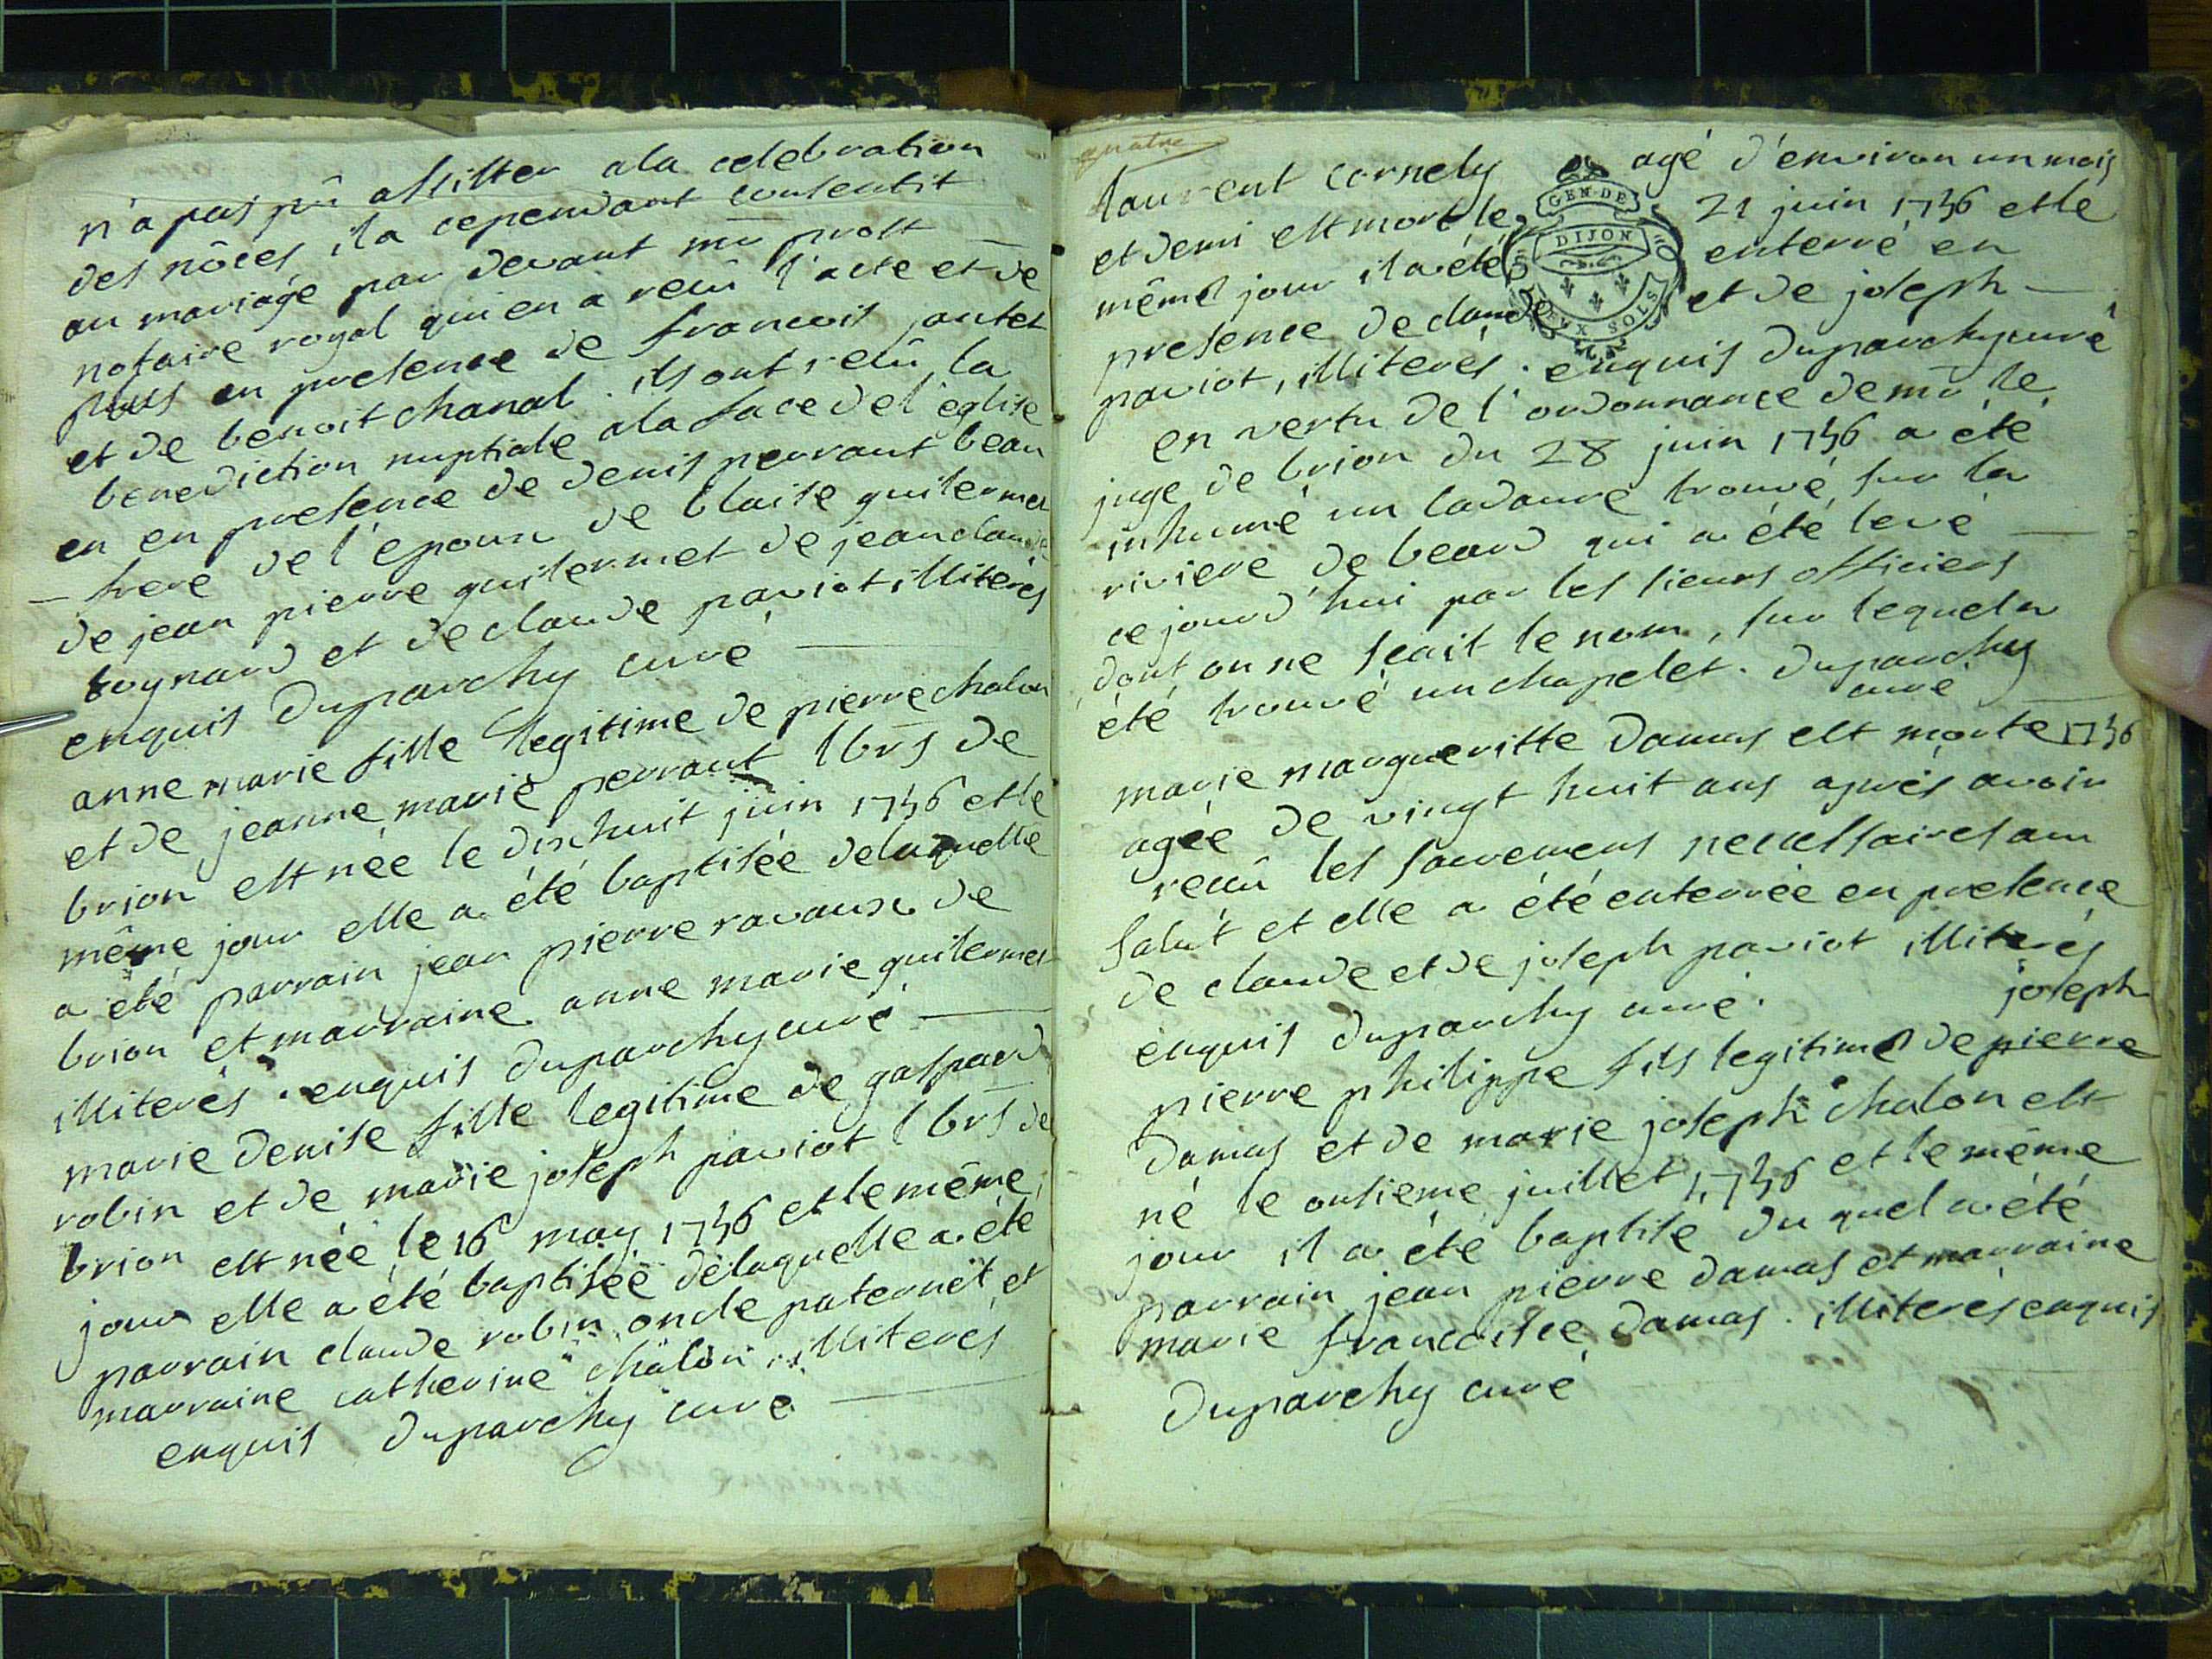 n'a pas pû assister ala celebration
des nôces, ila cependant consentit
au mariage par devant mr prost
notaire royal qui en a recû l'acte et de
plus en presence de francois jantet
et de benoit chanal. ils ont recû la
benediction nuptiale ala face de l'eglise
en en presence de denis perraut beau
frere de l'epoux de blaise guilermet
de jean pierre guilermet de jean claude
boynard et de claude paviot illiterés
enquis duparchy curé
anne marie fille legitime de pierre chalon
et de jeanne marie perraut lbrs de
brion est née le dix huit juin 1756 et le
même jour elle a été baptisée de laquelle
a été parrain jean pierre ravaux de
brion et marraine anne marie guilermet
illiterés enquis duparchy curé
marie denise fille legitime de gaspard
robin et de marie joseph paviot lbrs de
brion est née le 16 may 1756 et le même
jour elle a été baptisée delaquelle a été
parrain claude robin oncle paternel et
marraine catherine chalon illiterés
enquis duparchy curé
quatre
laurent cornely agé d'environ un mois
et demi est mort le 21 juin 1756 et le
même jour il a été enterré en
presence de claude et de joseph
paviot, illiterés. enquis duparchy curé
GEN. DE
DIJON
DEUX SOLS
en vertu de l'ordonnance de mr le
juge de brion du 28 juin 1756 a été
inhumé un cadavre trouvé sur la
riviere de beard qui a été levé
ce jourd'hui par les sieurs officiers
dont on ne scait le nom, sur lequel a
été trouvé un chapelet. duparchy
curé
marie margueritte damas est morte 1756
agée de vingt huit ans aprés avoir
recû les sacremens necessaires au
salut et elle a été enterrée en presence
de claude et de joseph paviot illiterés
enquis duparchy curé.
joseph
pierre philippe fils legitime de pierre
damas et de marie joseph chalon est
né le onsieme juillet 1756 et le même
jour il a été baptisé du quel a été
parrain jean pierre damas et marraine
marie francoise damas. illiterés enquis
duparchy curé